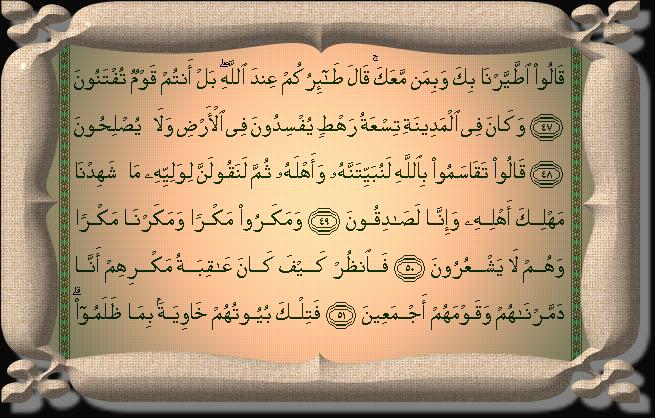 قَالُوا۟ ٱطَّيَّرْنَا بِكَ وَبِمَن مَّعَكَ ۚ قَالَ طَـٰٓئِرُكُمْ عِندَ ٱللَّهِ ۖ بَلْ أَنتُمْ قَوْمٌ تُفْتَنُونَ
٤٧ وَكَانَ فِى ٱلْمَدِينَةِ تِسْعَةُ رَهْطٍ يُفْسِدُونَ فِى ٱلْأَرْضِ وَلَا يُصْلِحُونَ
٤٨ قَالُوا۟ تَقَاسَمُوا۟ بِٱللَّهِ لَنُبَيِّتَنَّهُۥ وَأَهْلَهُۥ ثُمَّ لَنَقُولَنَّ لِوَلِيِّهِۦ مَا شَهِدْنَا
مَهْلِكَ أَهْلِهِۦ وَإِنَّا لَصَـٰدِقُونَ ٤٩ وَمَكَرُوا۟ مَكْرًا وَمَكَرْنَا مَكْرًا
وَهُمْ لَا يَشْعُرُونَ ٥٠ فَٱنظُرْ كَيْفَ كَانَ عَـٰقِبَةُ مَكْرِهِمْ أَنَّا
دَمَّرْنَـٰهُمْ وَقَوْمَهُمْ أَجْمَعِينَ ٥١ فَتِلْكَ بُيُوتُهُمْ خَاوِيَةًۢ بِمَا ظَلَمُوٓا۟ ۗ